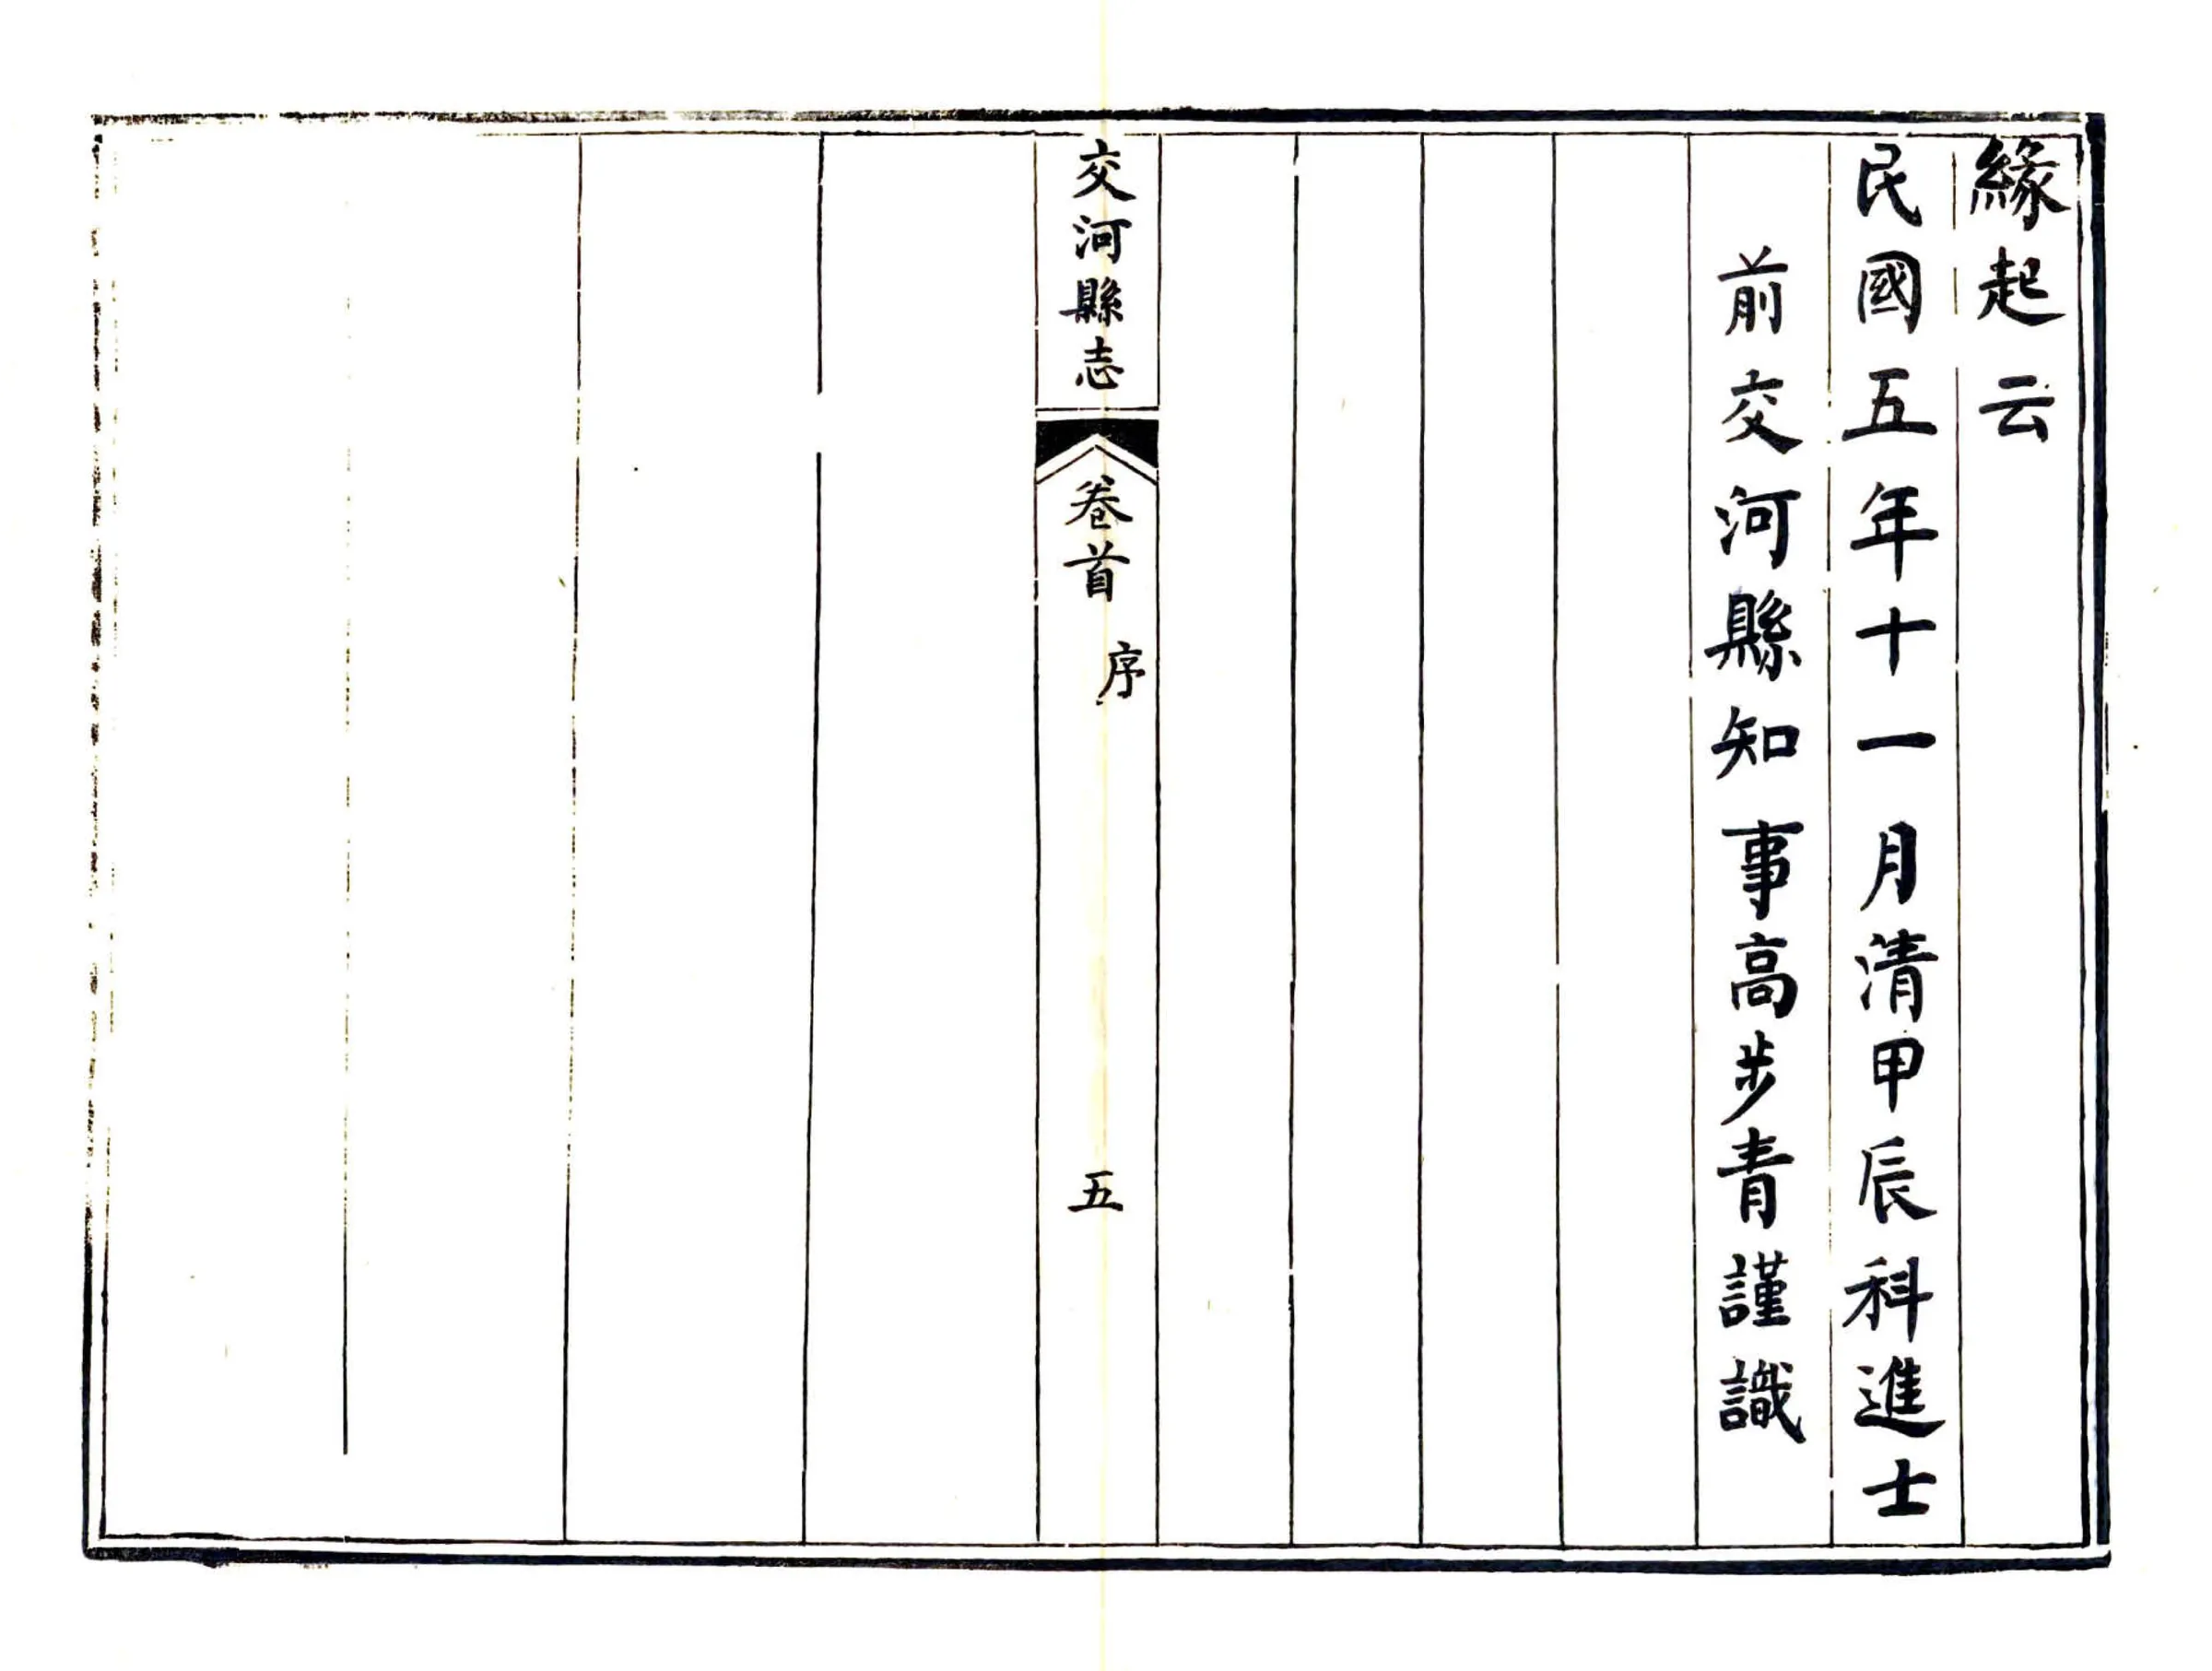 緣起云
民國五年十一月清甲辰科進士
前交河縣知事高步青謹識
交河縣志
卷首
序
五